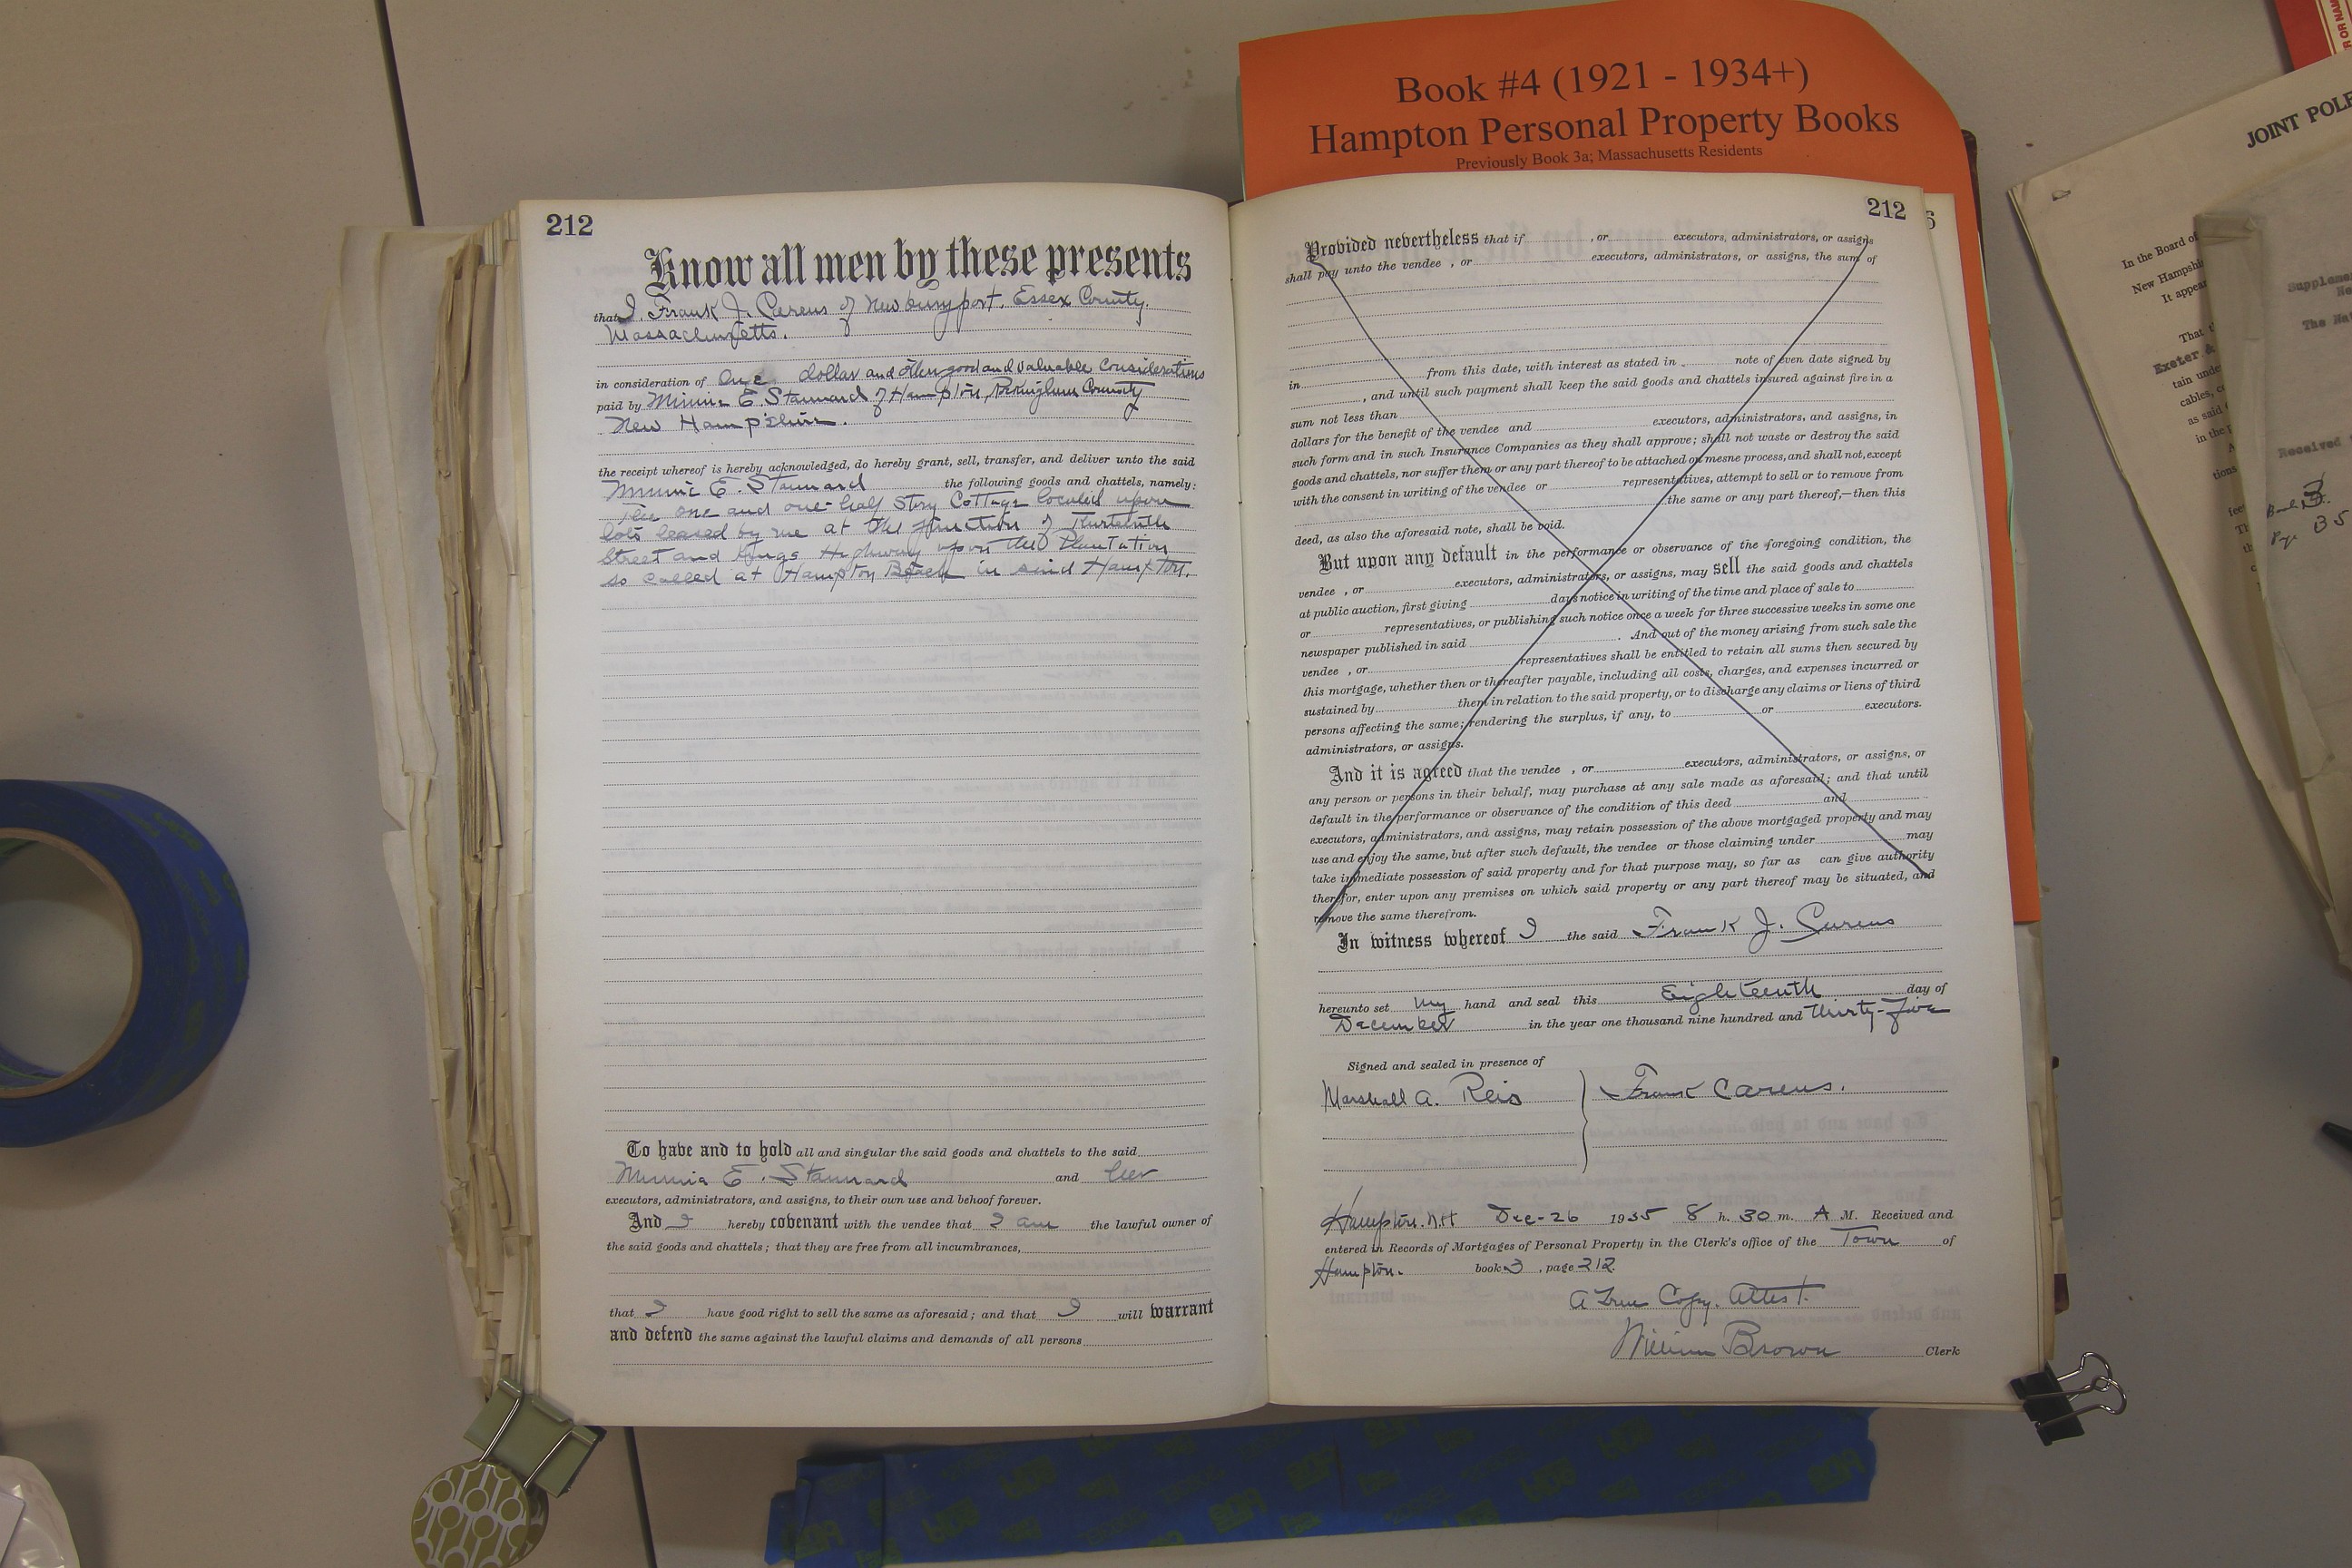 Book #4 (1921 - 1934+)
Hampton Personal Property Books
Previously Book 3a; Massachusetts Residents
212
Know all men by these presents
that I, Frank J. Carens of Newburyport, Essex County,
Massachusetts.
in consideration of One dollar and other good and valuable considerations
paid by Minnie E. Stannard of Hampton, Rockingham County
New Hampshire.
the receipt whereof is hereby acknowledged, do hereby grant, sell, transfer, and deliver unto the said
Minnie E. Stannard the following goods and chattels, namely:
The one and one-half Story Cottage located upon
lots leased by me at the junction of Thirteenth
Street and Kings Highway upon the Plantation
so called at Hampton Beach in said Hampton.
To have and to hold all and singular the said goods and chattels to the said
Minnie E. Stannard and her
executors, administrators, and assigns, to their own use and behoof forever.
And I hereby covenant with the vendee that I am the lawful owner of
the said goods and chattels; that they are free from all incumbrances,
that I have good right to sell the same as aforesaid; and that I will warrant
and defend the same against the lawful claims and demands of all persons
212
6
Provided nevertheless that if , or executors, administrators, or assigns
shall pay unto the vendee , or executors, administrators, or assigns, the sum of
in from this date, with interest as stated in note of even date signed by
, and until such payment shall keep the said goods and chattels insured against fire in a
sum not less than
dollars for the benefit of the vendee and executors, administrators, and assigns, in
such form and in such Insurance Companies as they shall approve; shall not waste or destroy the said
goods and chattels, nor suffer them or any part thereof to be attached on mesne process, and shall not, except
with the consent in writing of the vendee or representatives, attempt to sell or to remove from
the same or any part thereof,—then this
deed, as also the aforesaid note, shall be void.
But upon any default in the performance or observance of the foregoing condition, the
vendee , or executors, administrators, or assigns, may sell the said goods and chattels
at public auction, first giving days notice in writing of the time and place of sale to
or representatives, or publishing such notice once a week for three successive weeks in some one
newspaper published in said . And out of the money arising from such sale the
vendee , or representatives shall be entitled to retain all sums then secured by
this mortgage, whether then or thereafter payable, including all costs, charges, and expenses incurred or
sustained by them in relation to the said property, or to discharge any claims or liens of third
persons affecting the same; rendering the surplus, if any, to or executors.
administrators, or assigns.
And it is agreed that the vendee , or executors, administrators, or assigns, or
any person or persons in their behalf, may purchase at any sale made as aforesaid; and that until
default in the performance or observance of the condition of this deed and
executors, administrators, and assigns, may retain possession of the above mortgaged property and may
use and enjoy the same, but after such default, the vendee or those claiming under may
take immediate possession of said property and for that purpose may, so far as can give authority
therefor, enter upon any premises on which said property or any part thereof may be situated, and
remove the same therefrom.
In witness whereof I the said Frank J. Carens
hereunto set my hand and seal this Eighteenth day of
December in the year one thousand nine hundred and thirty-five
Signed and sealed in presence of
Marshall A. Reis } Frank Carens.
Hampton. N.H Dec-26 1935 8 h. 30 m. A M. Received and
entered in Records of Mortgages of Personal Property in the Clerk's office of the Town of
Hampton. book 3 , page 212.
A True Copy. Attest.
William Brown Clerk
JOINT POLE
In the Board of
New Hampshi
It appear
That t
Exeter &
tain unde
cables, c
as said
in the p
tions
Supplem
The Nat
Received
Book 3.
Page 35